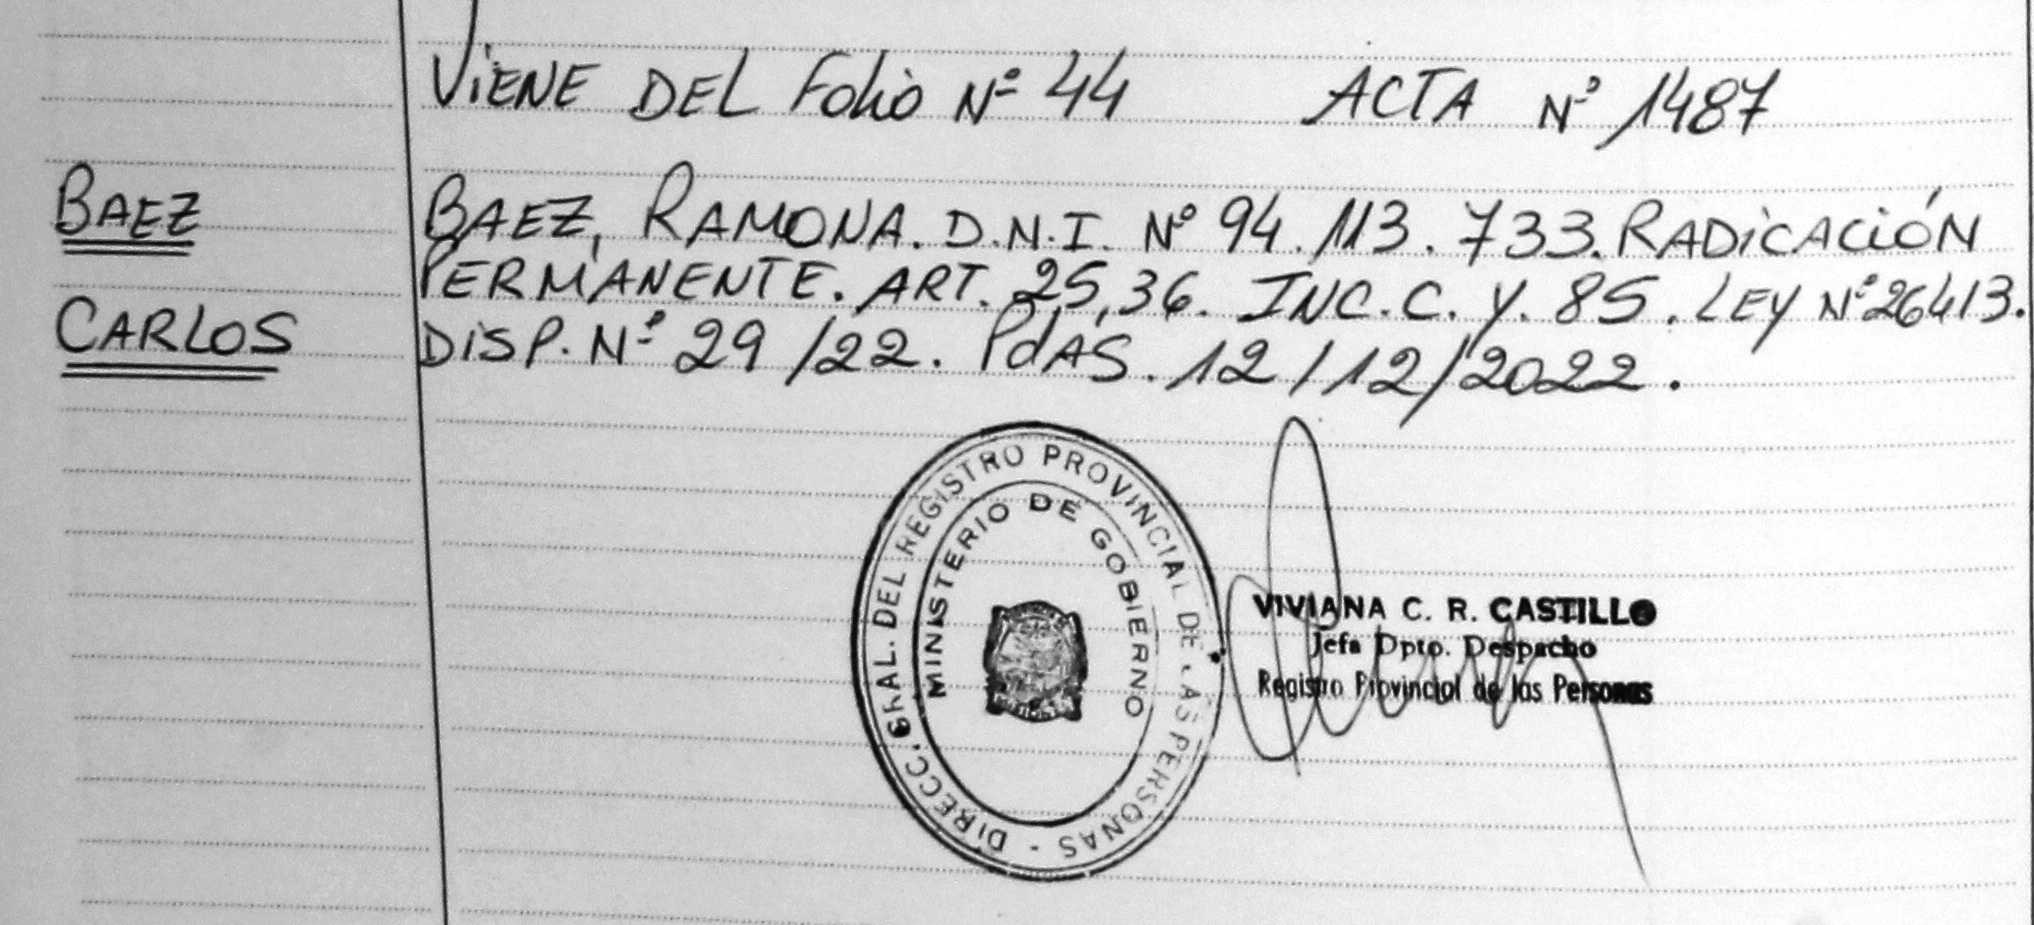 VIENE DEL Folio Nº 44 ACTA Nº 1487
BAEZ
CARLOS
BAEZ, RAMONA. D.N.I. Nº 94.113.733. RADICACIÓN
PERMANENTE. ART. 25, 36. INC. C. Y. 85. LEY Nº 26413.
DISP. Nº 29/22. PdAS. 12/12/2022.
DIRECC. GRAL. DEL REGISTRO PROVINCIAL DE LAS PERSONAS -
MINISTERIO DE GOBIERNO
VIVIANA C. R. CASTILLO
Jefa Dpto. Despacho
Registro Provincial de las Personas